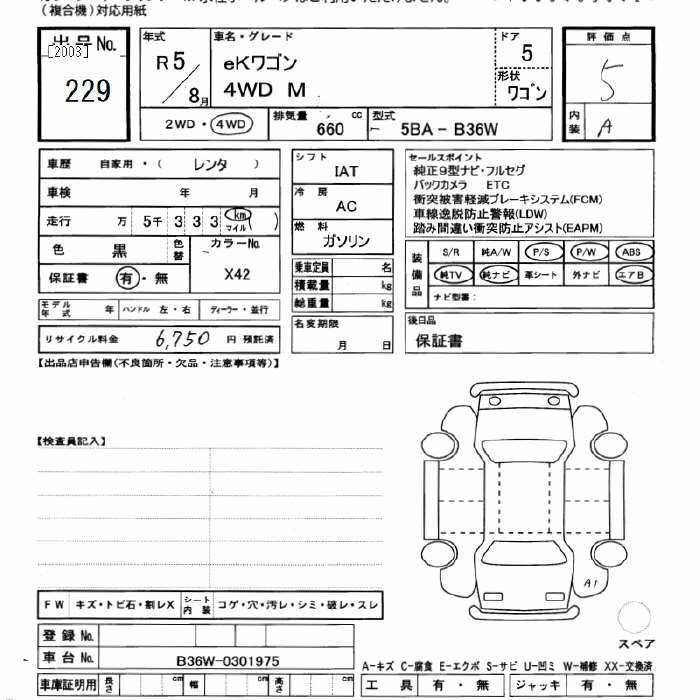 (複合機)対応用紙
出品No.
[2003]
229
年式
R5/8月
車名・グレード
eKワゴン
4WD M
ドア
5
形状
ワゴン
評価点
5
内装
A
2WD・4WD
排気量
660 cc
型式
5BA-B36W
車歴 自家用・( レンタ )
車検 年 月
走行 万 5千 3 3 3 km マイル ( )
色 黒 色替
カラーNo.
X42
保証書 有・無
モデル年式 年 ハンドル 左・右 ディーラー・並行
リサイクル料金 6,750 円 預託済
シフト
IAT
冷房
AC
燃料
ガソリン
乗車定員 名
積載量 kg
総重量 kg
名変期限
月 日
セールスポイント
純正9型ナビ・フルセグ
バックカメラ ETC
衝突被害軽減ブレーキシステム(FCM)
車線逸脱防止警報(LDW)
踏み間違い衝突防止アシスト(EAPM)
装備品
S/R 純A/W P/S P/W ABS
純TV 純ナビ 革シート 外ナビ エアB
ナビ型番:
後日品
保証書
【出品店申告欄(不良箇所・欠品・注意事項等)】
【検査員記入】
FW キズ・トビ石・割レX シート内装 コゲ・穴・汚レ・シミ・破レ・スレ
登録No.
車台No. B36W-0301975
車庫証明用 長さ cm 幅 cm 高さ cm
A1
スペア
A-キズ C-腐食 E-エクボ S-サビ U-凹ミ W-補修 XX-交換済
工具 有・無 ジャッキ 有・無